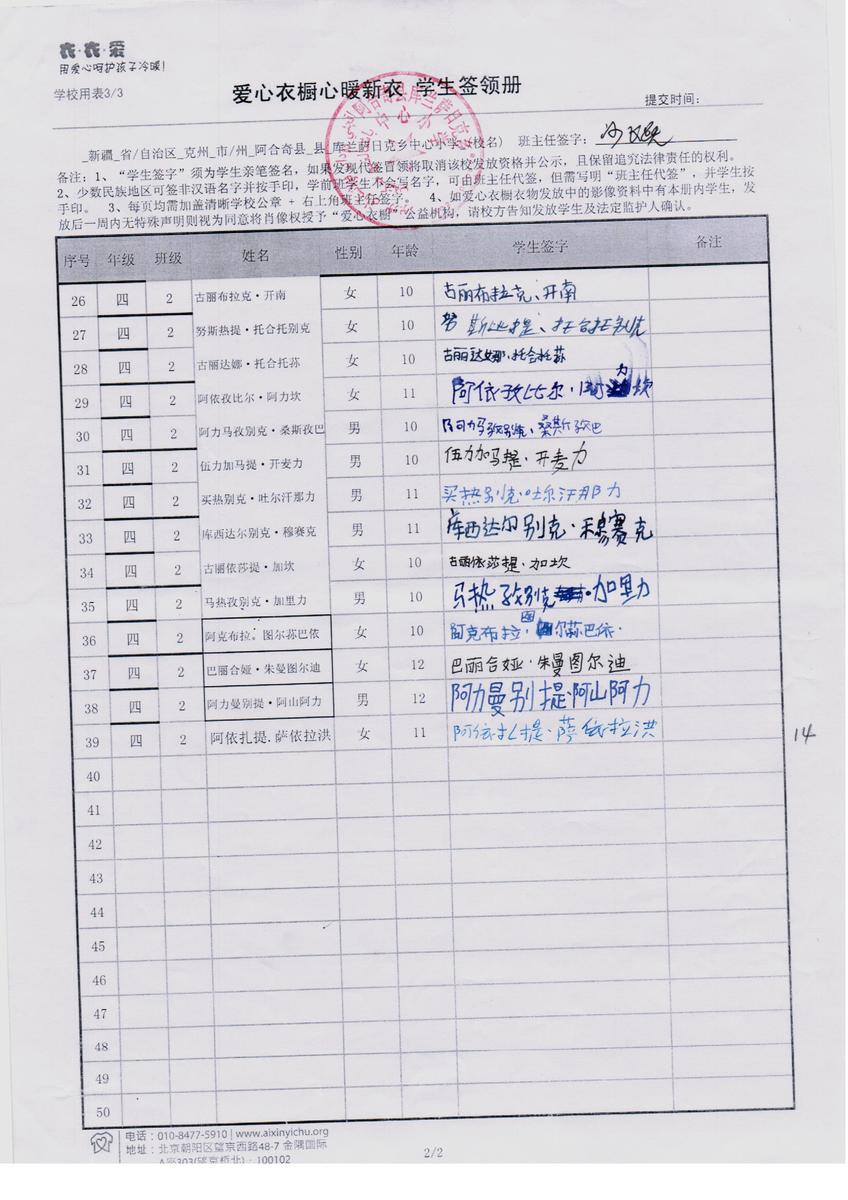 衣·衣·爱
用爱心呵护孩子冷暖!
学校用表3/3
爱心衣橱心暖新衣 学生签领册
提交时间:
_新疆_省/自治区_克州_市/州_阿合奇县_县_库兰萨日克乡中心小学_(校名) 班主任签字:
备注: 1、“学生签字”须为学生亲笔签名, 如果发现代签冒领将取消该校发放资格并公示, 且保留追究法律责任的权利。
2、少数民族地区可签非汉语名字并按手印, 学前班学生不会写名字, 可由班主任代签, 但需写明“班主任代签”, 并学生按
手印。 3、每页均需加盖清晰学校公章 + 右上角班主任签字。 4、如爱心衣橱衣物发放中的影像资料中有本册内学生, 发
放后一周内无特殊声明则视为同意将肖像权授予“爱心衣橱”公益机构, 请校方告知发放学生及法定监护人确认。
序号 年级 班级 姓名 性别 年龄 学生签字 备注
26 四 2 古丽布拉克·开南 女 10 古丽布拉克、开南
27 四 2 努斯热提·托合托别克 女 10 努斯 提、托合托别克
28 四 2 古丽达娜·托合托荪 女 10 古丽达娜·托合托荪
29 四 2 阿依孜比尔·阿力坎 女 11 阿依孜比尔·阿力坎
30 四 2 阿力马孜别克·桑斯孜巴 男 10 阿力马孜别克·桑斯孜巴
31 四 2 伍力加马提·开麦力 男 10 伍力加马提·开麦力
32 四 2 买热别克·吐尔汗那力 男 11 买热别克·吐尔汗那力
33 四 2 库西达尔别克·穆赛克 男 11 库西达尔别克·穆赛克
34 四 2 古丽依莎提·加坎 女 10 古丽依莎提·加坎
35 四 2 马热孜别克·加里力 男 10 马热孜别克·加里力
36 四 2 阿克布拉。图尔荪巴依 女 10 阿克布拉·图尔荪巴依·
37 四 2 巴丽合娅·朱曼图尔迪 女 12 巴丽合娅·朱曼图尔迪
38 四 2 阿力曼别提·阿山阿力 男 12 阿力曼别提·阿山阿力
39 四 2 阿依扎提.萨依拉洪 女 11 阿依扎提·萨依拉洪 14
40
41
42
43
44
45
46
47
48
49
50
电话: 010-8477-5910 | www.aixinyichu.org
地址: 北京朝阳区望京西路48-7 金隅国际
A座303(望京桥北) · 100102
2/2